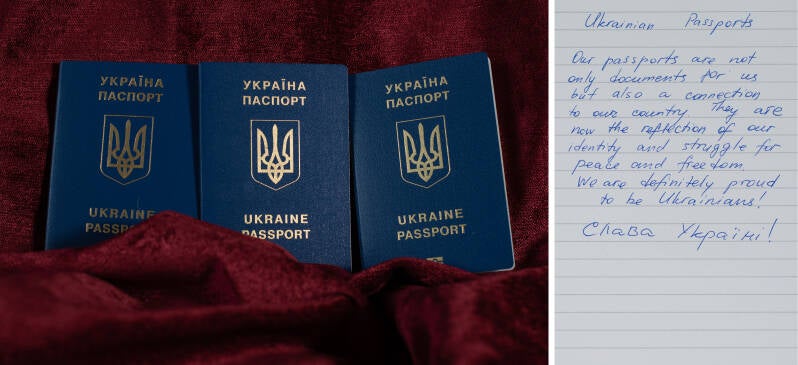 УКРАЇНА
ПАСПОРТ
UKRAINE
PASSPORT
УКРАЇНА
ПАСПОРТ
UKRAINE
PASSPORT
УКРАЇНА
ПАСПОРТ
UKRAINE
PASSPORT
Ukrainian Passports
Our passports are not
only documents for us
but also a connection
to our country. They are
now the reflection of our
identity and struggle for
peace and freedom.
We are definitely proud
to be Ukrainians!
Слава Україні!